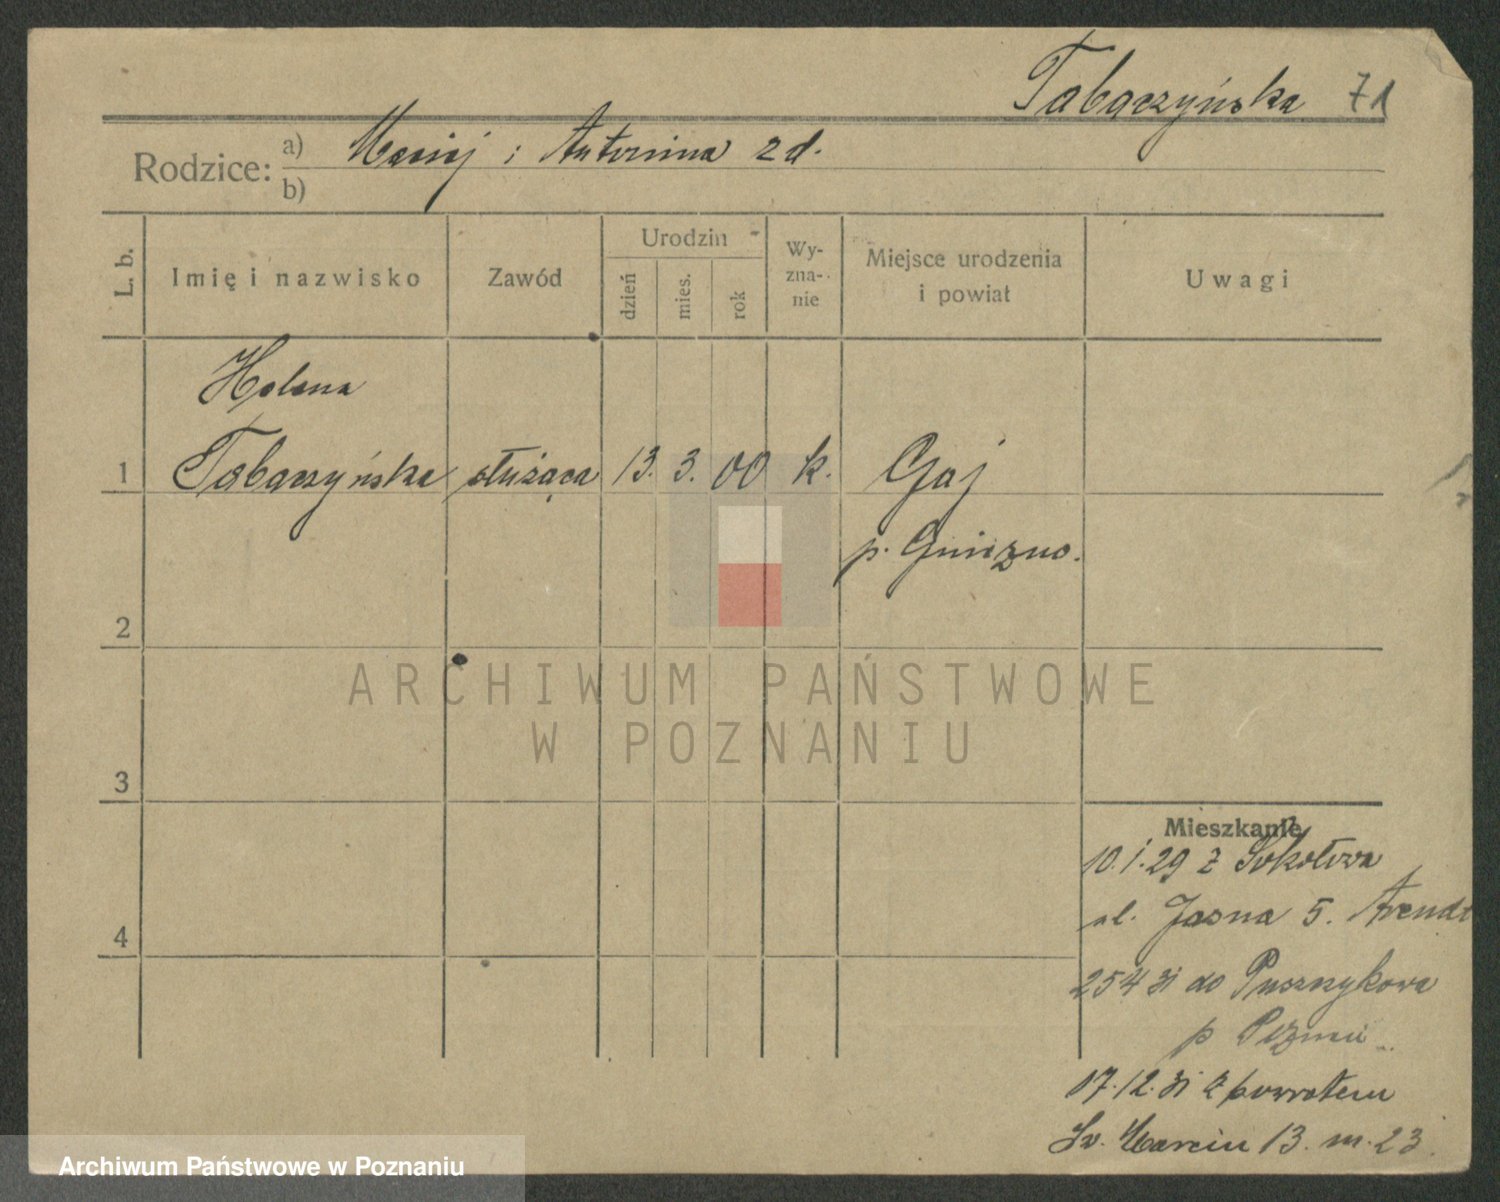 Tabaczyńska 71
Rodzice: a) Maciej i Antonina zd.
b)
L. b.
Imię i nazwisko
Zawód
Urodzin
dzień
mies.
rok
Wy-
zna-
nie
Miejsce urodzenia
i powiat
Uwagi
Helena
1 Tabaczyńska służąca 13. 3. 00 k. Gaj
p. Gniezno.
2
3
4
ARCHIWUM PAŃSTWOWE
W POZNANIU
Mieszkanie
10.1.29 z Sokołowa
ul. Jasna 5. Arendt
25 4 31 do Puszczykowa
p
07.12.31 z powrotem
Św. Marcin 13. m. 23.
Archiwum Państwowe w Poznaniu